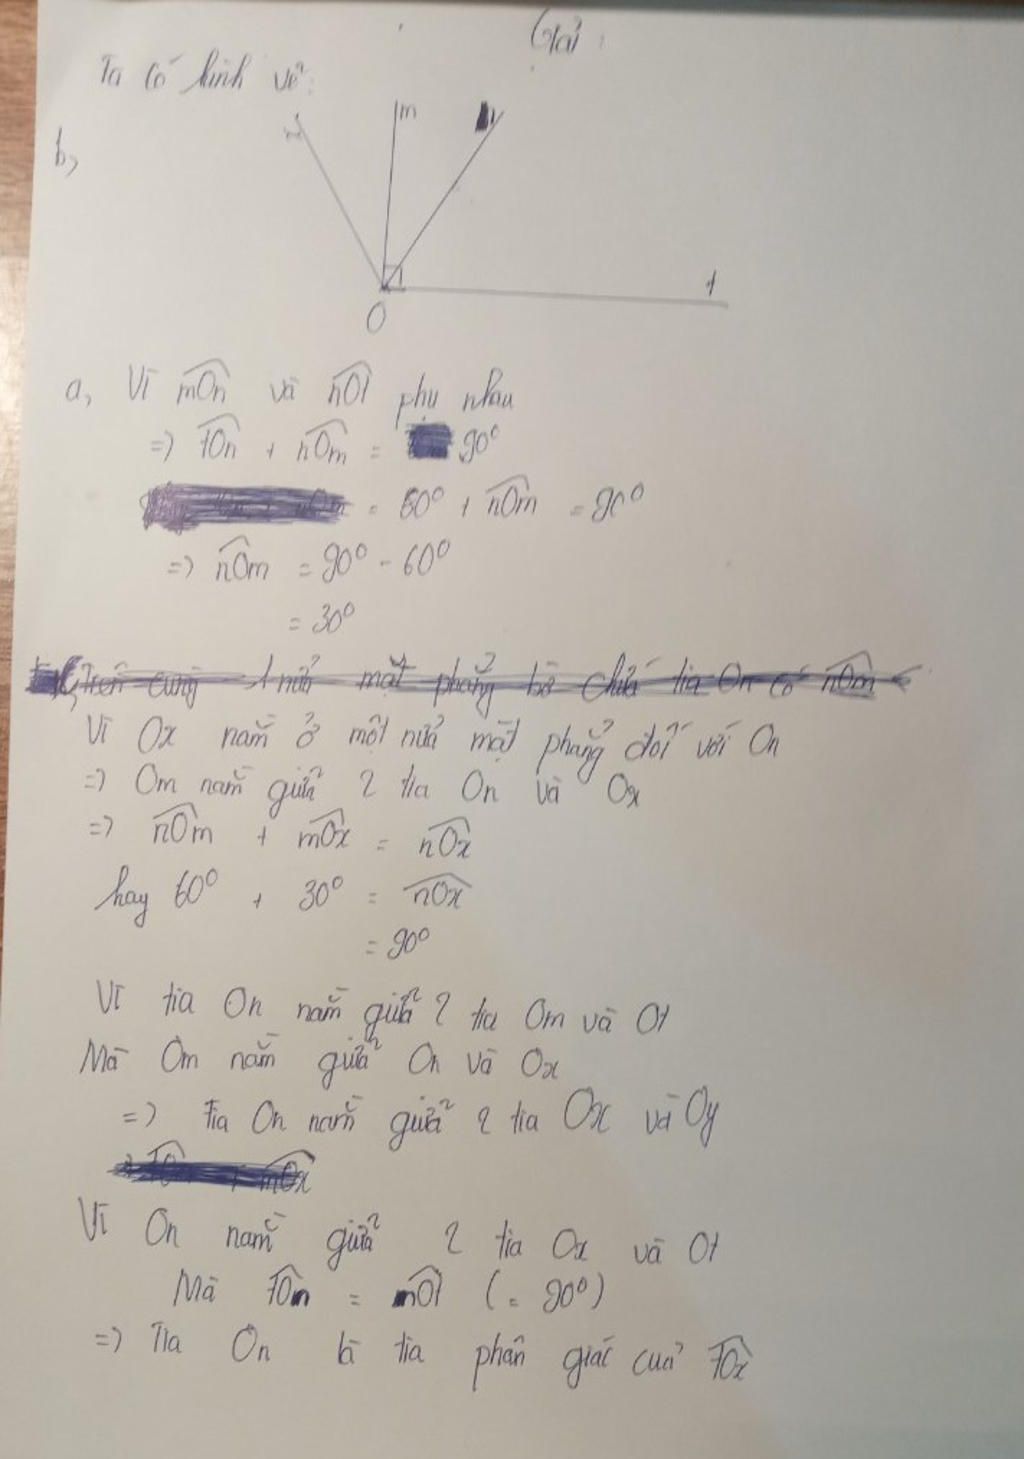 Giải:
Ta có hình vẽ:
b,
x
m
n
t
O
a, Vì mOn và nOt phụ nhau
=> tOn + nOm = 90°
= 60° + nOm = 90°
=> nOm = 90° - 60°
= 30°
Trên cùng 1 nửa mặt phẳng bờ chứa tia On có nOm <
Vì Ox nằm ở một nửa mặt phẳng đối với On
=> Om nằm giữa 2 tia On và Ox
=> nOm + mOx = nOx
hay 60° + 30° = nOx
= 90°
Vì tia On nằm giữa 2 tia Om và Ot
Mà Om nằm giữa On và Ox
=> tia On nằm giữa 2 tia Ox và Oy
Vì On nằm giữa 2 tia Ox và Ot
Mà tOm = nOt (= 90°)
=> Tia On là tia phân giác của tOx